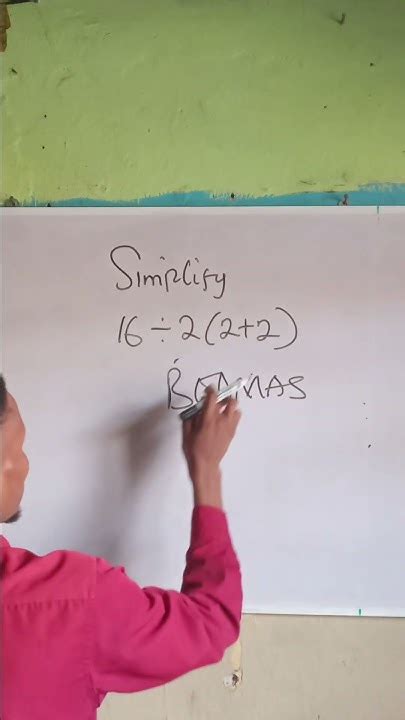 Simplify
16 ÷ 2(2+2)
BODMAS